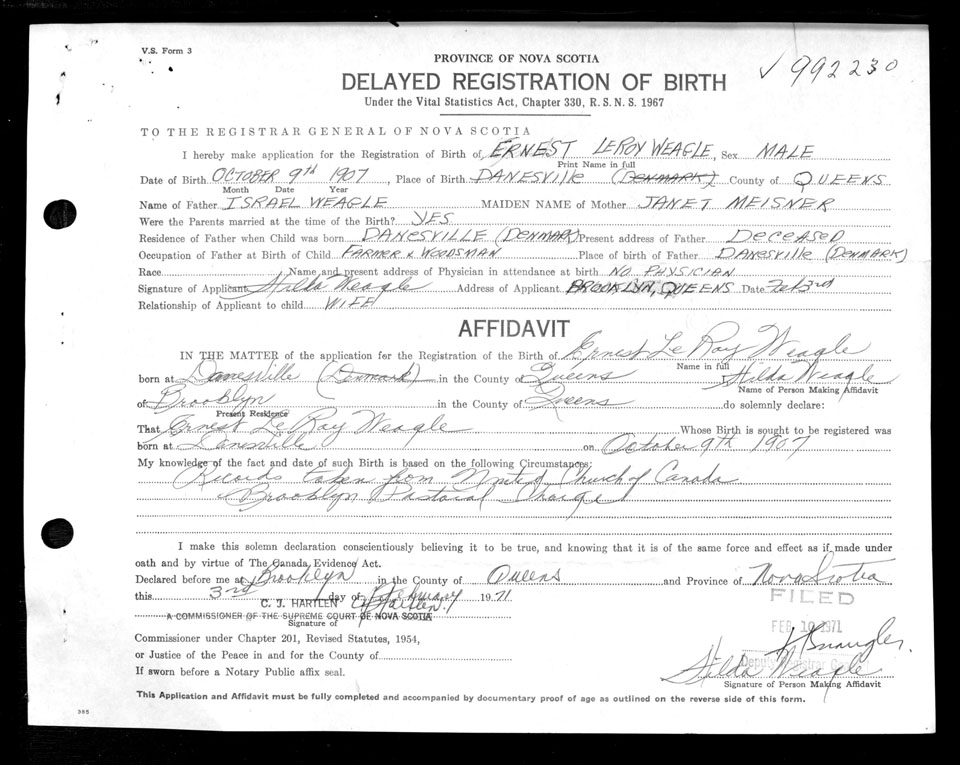 V.S. Form 3
✓ 992230
PROVINCE OF NOVA SCOTIA
DELAYED REGISTRATION OF BIRTH
Under the Vital Statistics Act, Chapter 330, R.S.N.S. 1967
TO THE REGISTRAR GENERAL OF NOVA SCOTIA
I hereby make application for the Registration of Birth of ERNEST LEROY WEAGLE, Sex MALE
Print Name in full
Date of Birth OCTOBER 9th 1907, Place of Birth DANESVILLE (DENMARK) County of QUEENS
Month Date Year
Name of Father ISRAEL WEAGLE MAIDEN NAME of Mother JANET MEISNER
Were the Parents married at the time of the Birth? YES
Residence of Father when Child was born DANESVILLE (DENMARK) Present address of Father DECEASED
Occupation of Father at Birth of Child FARMER & WOODSMAN Place of birth of Father DANESVILLE (DENMARK)
Race Name and present address of Physician in attendance at birth NO PHYSICIAN
Signature of Applicant Hilda Weagle Address of Applicant BROOKLYN, QUEENS Date Feb 3rd
Relationship of Applicant to child WIFE
AFFIDAVIT
IN THE MATTER of the application for the Registration of the Birth of Ernest Le Roy Weagle
Name in full
born at Danesville (Denmark) in the County of Queens Hilda Weagle
Name of Person Making Affidavit
of Brooklyn in the County of Queens do solemnly declare:
Present Residence
That Ernest Le Roy Weagle Whose Birth is sought to be registered was
born at Danesville on October 9th 1907
My knowledge of the fact and date of such Birth is based on the following Circumstances:
Records taken from United Church of Canada
Brooklyn Pastoral Charge
I make this solemn declaration conscientiously believing it to be true, and knowing that it is of the same force and effect as if made under
oath and by virtue of The Canada Evidence Act.
Declared before me at Brooklyn in the County of Queens and Province of Nova Scotia
this 3rd day of February 1971
FILED
C. J. HARTLEN C J Hartlen
A COMMISSIONER OF THE SUPREME COURT OF NOVA SCOTIA
Signature of
FEB 10 1971
Commissioner under Chapter 201, Revised Statutes, 1954,
or Justice of the Peace in and for the County of
Deputy Registrar General
If sworn before a Notary Public affix seal.
Hilda Weagle
Signature of Person Making Affidavit
This Application and Affidavit must be fully completed and accompanied by documentary proof of age as outlined on the reverse side of this form.
385